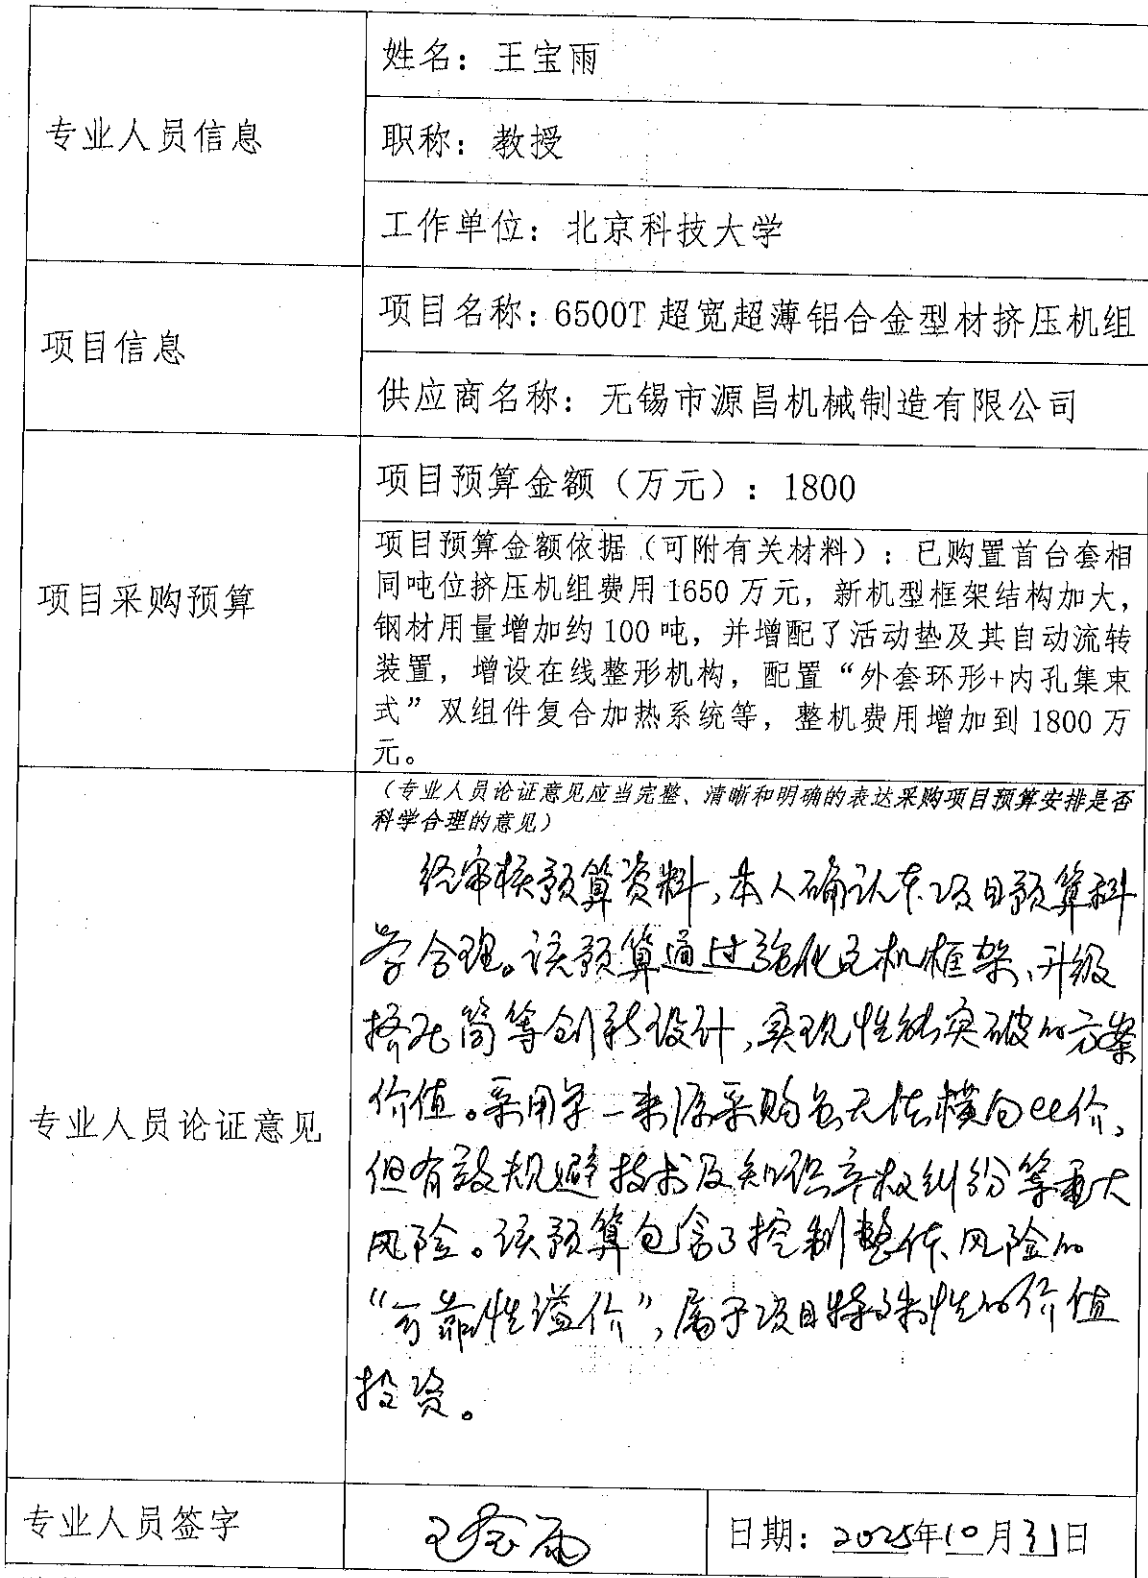 专业人员信息
姓名：王宝雨
职称：教授
工作单位：北京科技大学
项目信息
项目名称：6500T 超宽超薄铝合金型材挤压机组
供应商名称：无锡市源昌机械制造有限公司
项目采购预算
项目预算金额（万元）：1800
项目预算金额依据（可附有关材料）：已购置首台套相
同吨位挤压机组费用1650万元，新机型框架结构加大，
钢材用量增加约100吨，并增配了活动垫及其自动流转
装置，增设在线整形机构，配置“外套环形+内孔集束
式”双组件复合加热系统等，整机费用增加到1800万
元。
专业人员论证意见
（专业人员论证意见应当完整、清晰和明确的表达采购项目预算安排是否
科学合理的意见）
经审核预算资料，本人确认本项目预算科
学合理。该预算通过强化主机框架、升级
挤压筒等创新设计，实现性能突破的方案
价值。采用单一来源采购虽无法横向比价，
但有效规避技术及知识产权纠纷等重大
风险。该预算包含了控制整体风险的
“可靠性溢价”，属于项目特殊性的价值
投资。
专业人员签字
王宝雨
日期：2025年10月31日